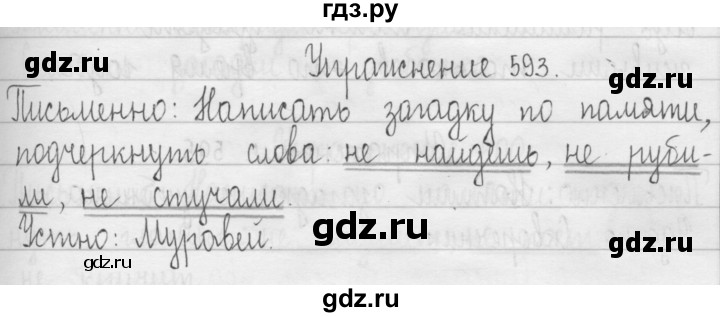 гдз.ру
gdz.ru gdz.ru
Упражнение 593.
Письменно: Написать загадку по памяти,
gdz.ru
подчеркнуть слова: не найдёшь, не руби-
ли, не стучали.
gdz.ru
Устно: Муравей.
gdz.ru
gdz.ru